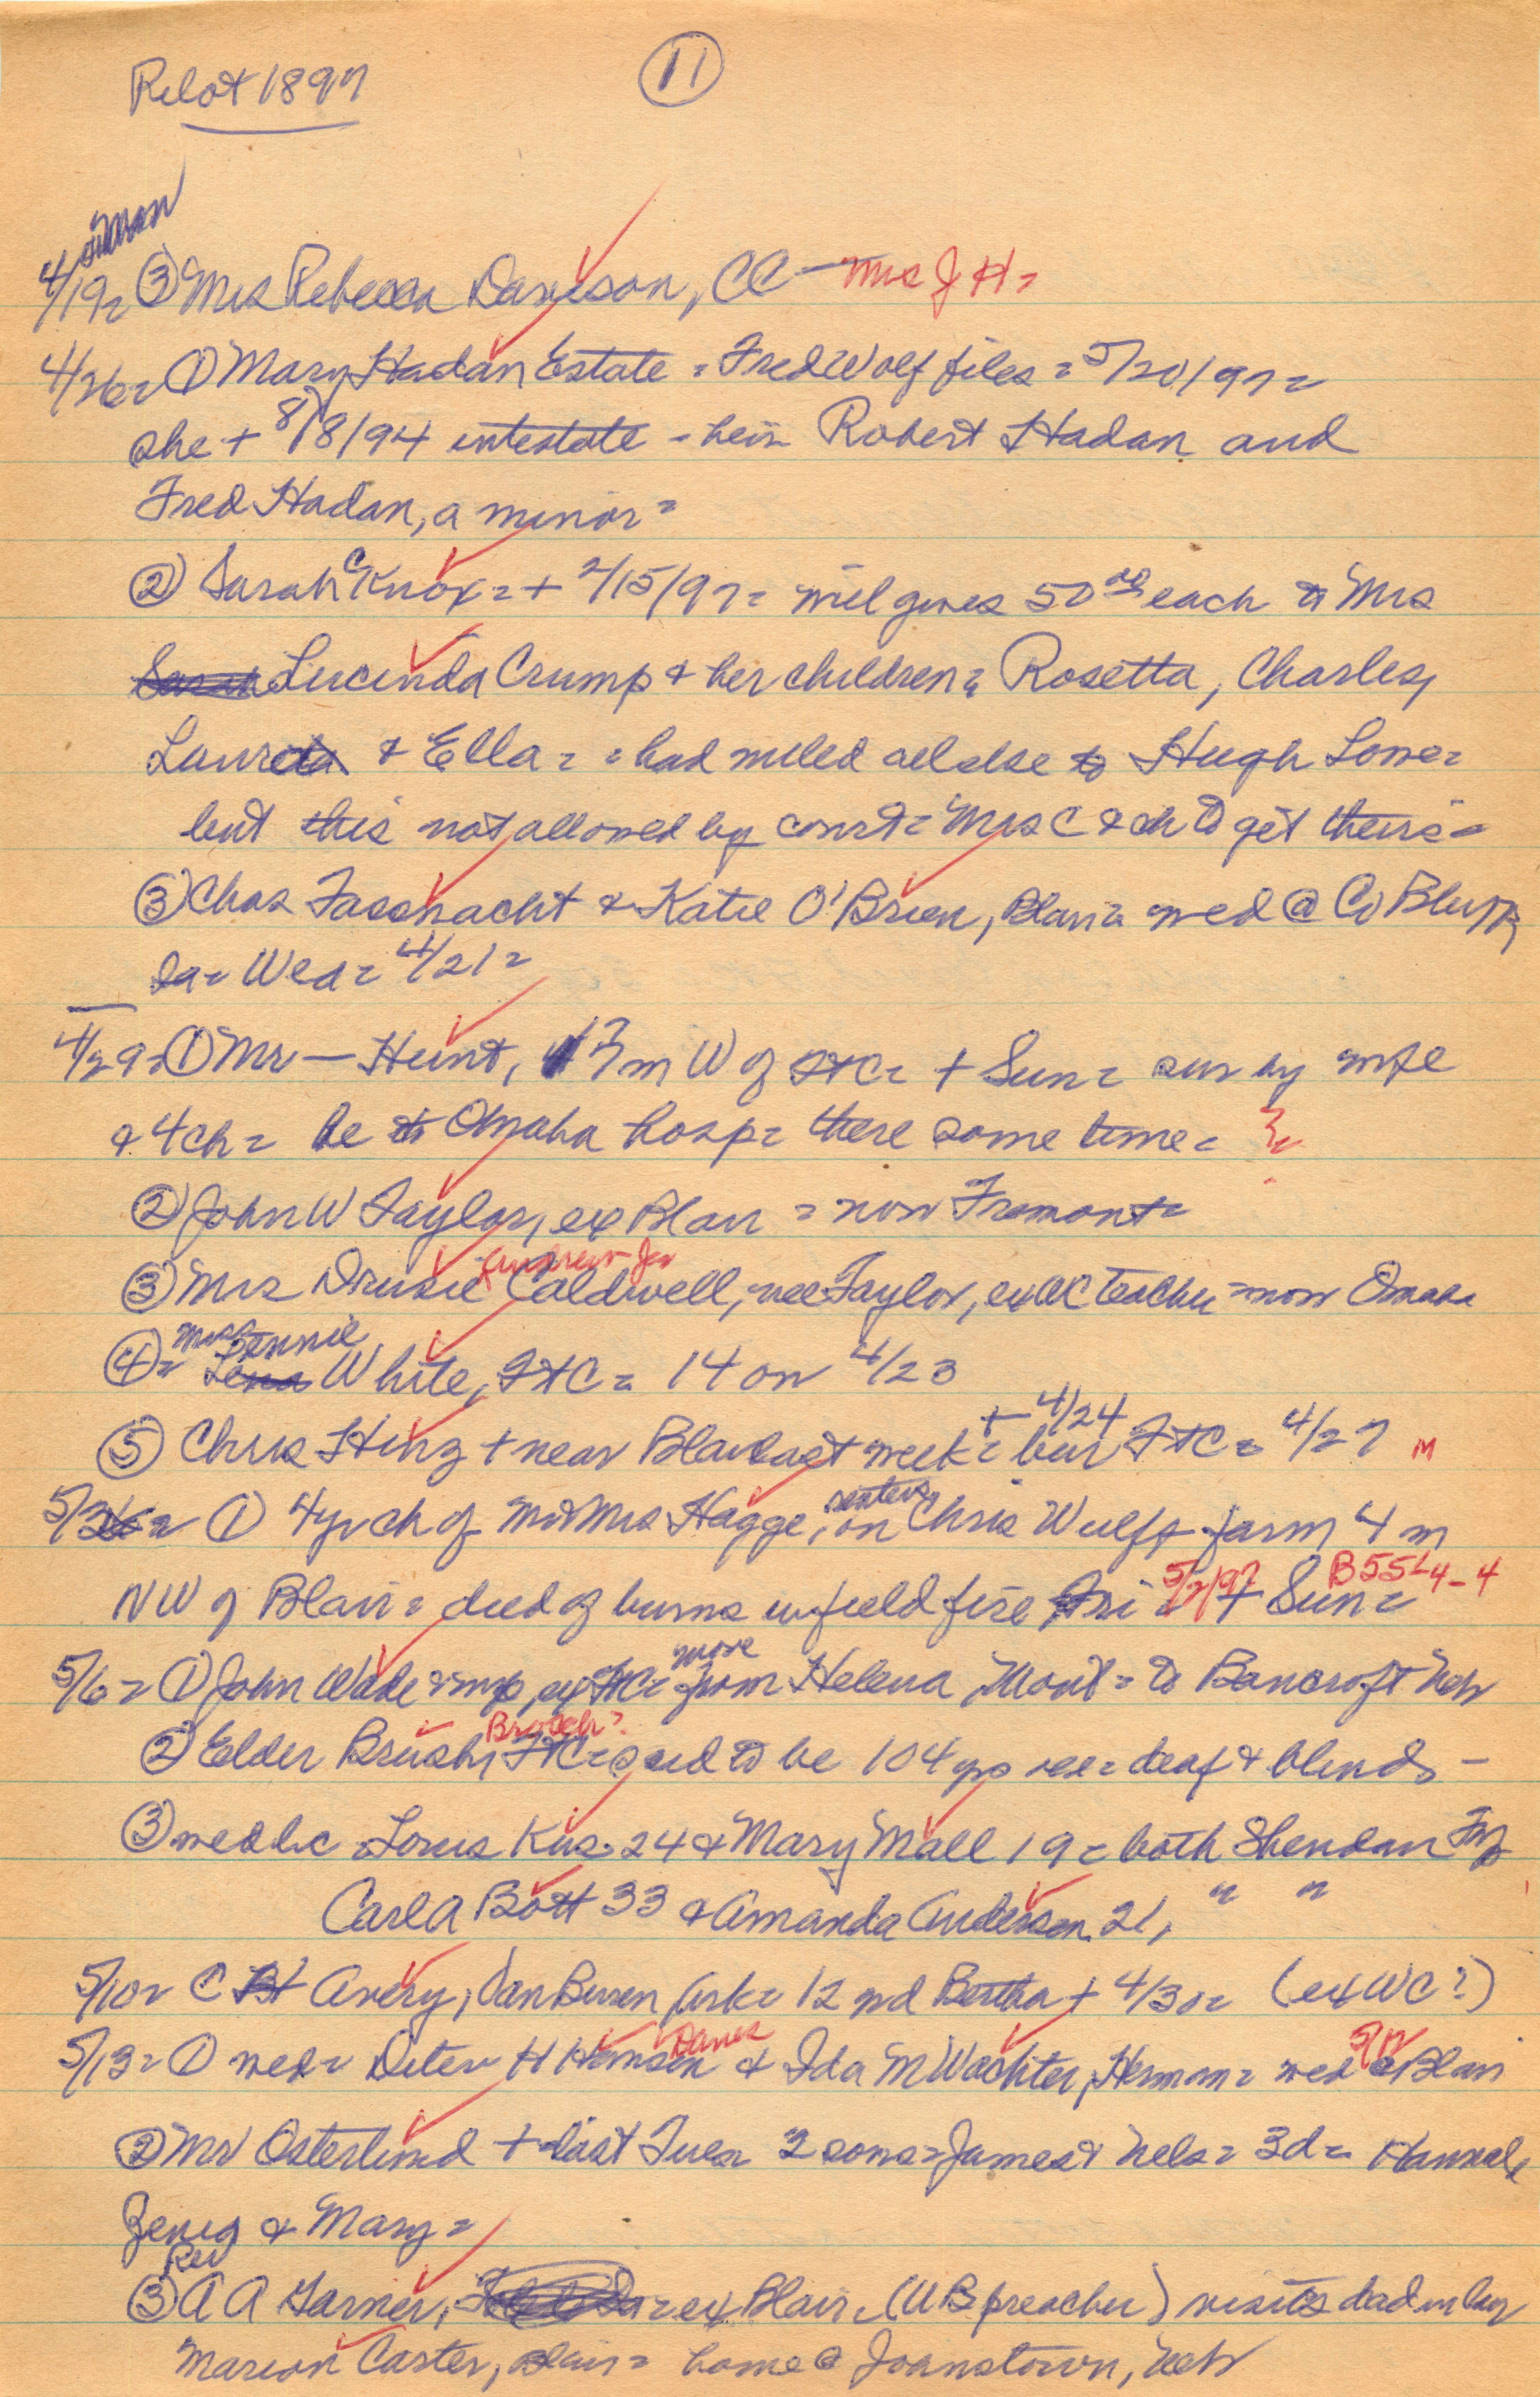 Pilot 1897
11
4/19= ③ Mrs Rebecca Davison, CC — Mrs J H=
4/26= ① Mary Hadan Estate = Fred Wolf files = 5/20/97=
she + 8/8/94 intestate - heirs Robert Hadan and
Fred Hadan, a minor=
② Sarah C Knox = + 2/15/97= will gives 50 00 each to Mrs
Sarah Lucinda Crump & her children= Rosetta, Charles,
Laura & Ella = = had willed all else to Hugh Lowe=
but this not allowed by court = Mrs C & ch to get theirs =
③ Chas Fassnacht & Katie O'Brien, Blair= wed @ Co Bluffs,
Ia = Wed = 4/21=
4/29= ① Mr — Hunt, 7 m W of FtC= + Sun = sur by wife
& 4 ch = he to Omaha hosp= there some time =
② John W Taylor, ex Blair = now Fremont=
③ Mrs Drusie Andrew Jr Caldwell, nee Taylor, ex WC teacher = now Omaha
④ = Miss Jennie Lena White, FtC = 14 on 4/23
⑤ Chris Hinz + near Blair last week = + 4/24 bur FtC = 4/27 M
5/3= ① 4 yr ch of Mr & Mrs Hagge, renters on Chris Wulff farm 4 m
NW of Blair = died of burns in field fire Fri = 5/2/97 + Sun = B55L4-4
5/6= ① John Wade & wife, ex FtC= move from Helena, Mont = to Bancroft Neb
② Elder Brush, Broach? FtC= said to be 104 yrs = deaf & blind -
③ wed lic Louis Kus 24 & Mary Mall 19 = both Sheridan Twp
Carl A Bott 33 & Amanda Anderson 21, " "
5/10= C Avery, Van Buren Ark= 12 yr d Bertha + 4/30= (ex WC?)
5/13= ① wed = Deter H Hamsen Dames & Ida M Wachter, Herman = wed 5/12 @ Blair
② Mr Osterlund + last Tues 2 sons = James & Nels = 3 d = Hannah,
& Mary =
③ Rev A A Garner, ex Blair (UB preacher) visits dad in law
Marion Carter, Blair = home @ Johnstown, Neb